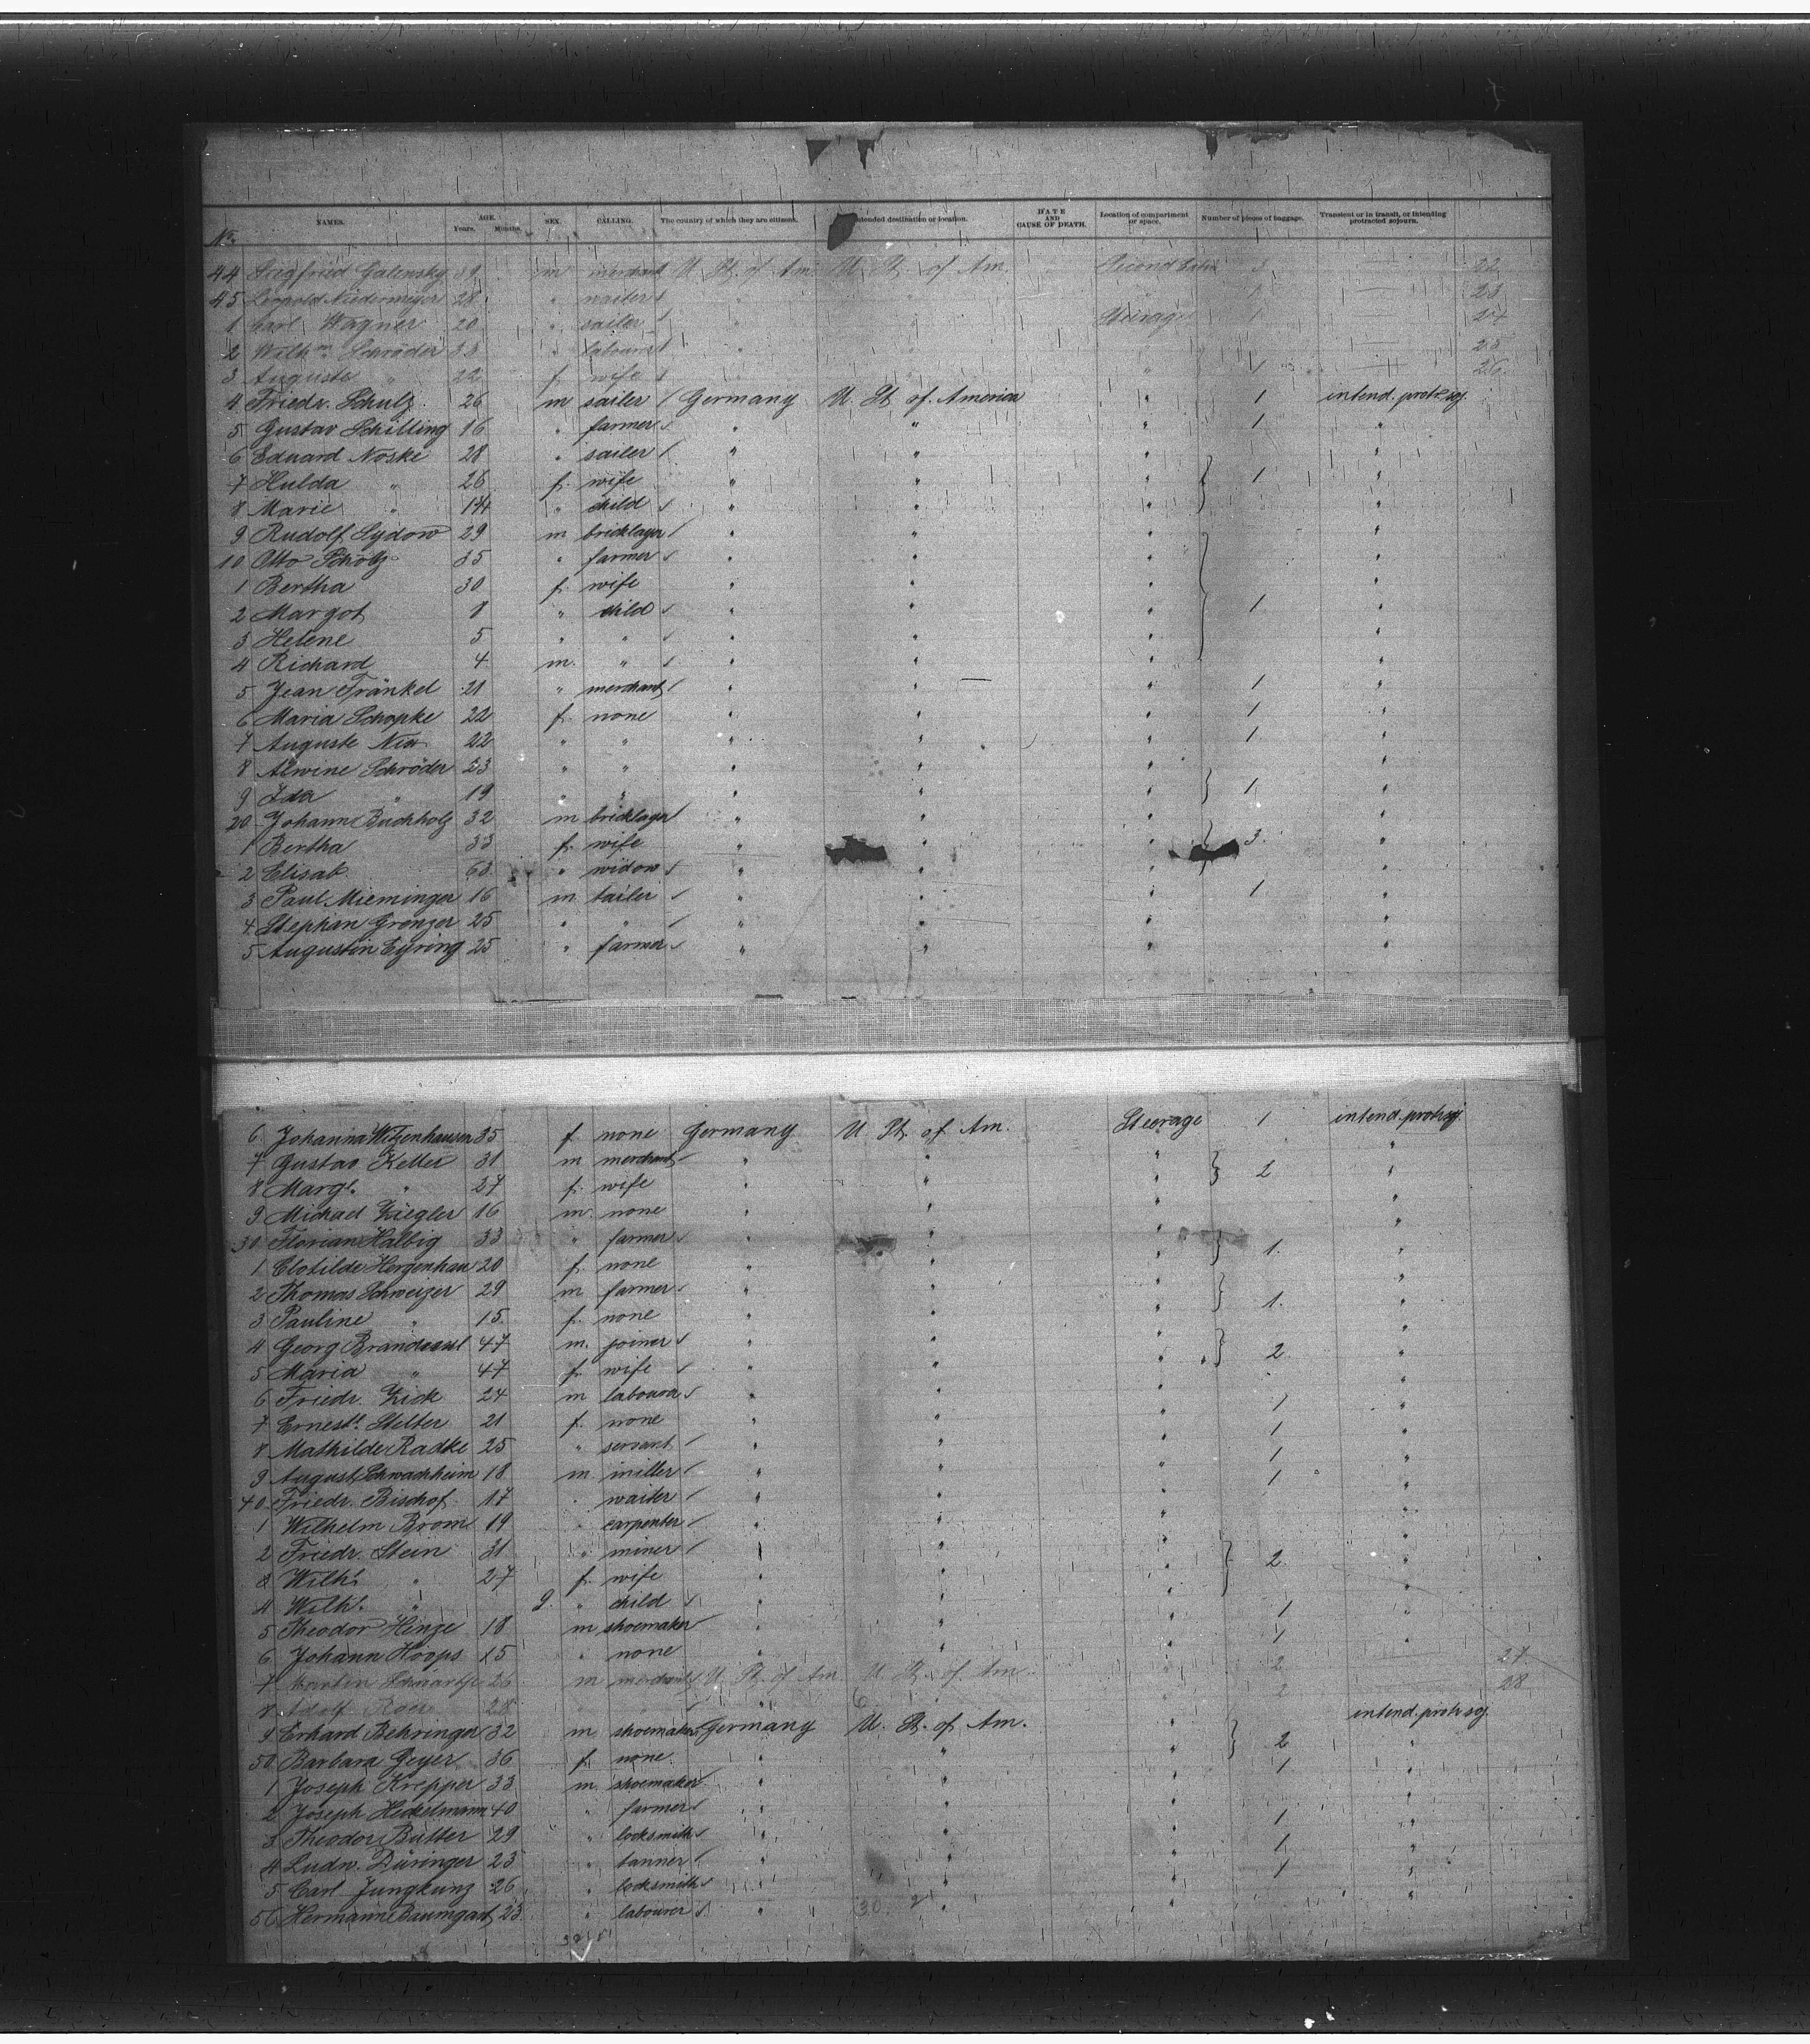 No. NAMES. AGE. Years. Months. SEX. CALLING. The country of which they are citizens. Intended destination or location. DATE AND CAUSE OF DEATH. Location of compartment or space. Number of pieces of baggage. Transient or in transit, or intending protracted sojourn.
44 Siegfried Galensky 39 m merchant U. St. of Am. U. St. of Am. Second Cabin 3 — 22
45 Leopold Niedermeyer 28 " waiter " " " 1 — 23
1 Carl Wagner 20 " sailer " " Steerage 1 — 24
2 Wilhm. Schröder 33 " labourer " " " — 25
3 Auguste " 22 f. wife " " " 1 — 26
4 Friedr. Schulz 26 m sailer Germany U. St. of America " 1 intend. protr. soj.
5 Gustav Schilling 16 " farmer " " " 1 "
6 Eduard Noske 28 " sailer " " " "
7 Hulda " 26 f. wife " " " 1 "
8 Marie " " child " " " "
9 Rudolf Sydow 29 m bricklayer " " " "
10 Otto Scholz 35 " farmer " " " "
1 Bertha 30 f. wife " " " "
2 Margot 8 " child " " " 1 "
3 Helene 5 " " " " " "
4 Richard 4 m. " " " " "
5 Jean Fränkel 21 " merchant " " " 1 "
6 Maria Schopke 22 f. none " " " 1 "
7 Auguste 22 " " " " " 1 "
8 Alwine Schröder 23 " " " " " "
9 Ida " 19 " " " " " 1 "
20 Johann Buchholz 32 m bricklayer " " " "
1 Bertha 33 f. wife " " " 3. "
2 Elisab. 63 " widow " " " "
3 Paul Mieminger 16 m tailer " " " 1 "
4 Stephan Grenzer 25 " " " " " "
5 Augustin Eyring 25 " farmer " " " "
6 Johanna Witzenhausen 35 f. none Germany U. St. of Am. Steerage 1 intend. protr. soj.
7 Gustav Keller 31 m merchant " " " "
8 Margt. " 27 f. wife " " " 2 "
9 Michael Ziegler 16 m. none " " " "
30 Florian Halbig 33 " farmer " " " "
1 Clotilde Hergenhan 20 f. none " " " 1. "
2 Thomas Schweizer 29 m farmer " " " "
3 Pauline " 15. f. none " " " 1. "
4 Georg 47 m. joiner " " " "
5 Maria " 47 f. wife " " " 2 "
6 Friedr. Zick 24 m labourer " " " 1 "
7 Ernest. Stelter 21 f. none " " " 1 "
8 Mathilde Radke 25 " servant " " " 1 "
9 August Schwachheim 18 m miller " " " 1 "
40 Friedr. Bischof 17 " waiter " " " "
1 Wilhelm Brom 19 " carpenter " " " "
2 Friedr. Stein 31 " miner " " " 2. "
3 Wilh. " 27 f. wife " " " "
4 Wilh. " 9. " child " " " "
5 Theodor Hinze 18 m shoemaker " " " 1 "
6 Johann Hoops 15 " none " " " 1 "
7 26 m merchant U. St. of Am. U. St. of Am. " 2 — 27
8 Adolf 28 " " " " " 2 — 28
9 Erhard Behringer 32 m shoemaker Germany U. St. of Am. " intend. protr. soj.
50 Barbara Geyer 36 f. none " " " 2 "
1 Joseph Krepper 33 m shoemaker " " " 1 "
2 Joseph Heckelmann 40 " farmer " " " "
3 Theodor Butter 29 " locksmith " " " 1 "
4 Ludw. Düringer 23 " tanner " " " 1 "
5 Carl Jungkunz 26 " locksmith " " " 1 "
56 Hermann Baumgart 23 " labourer " 30 2 " " "